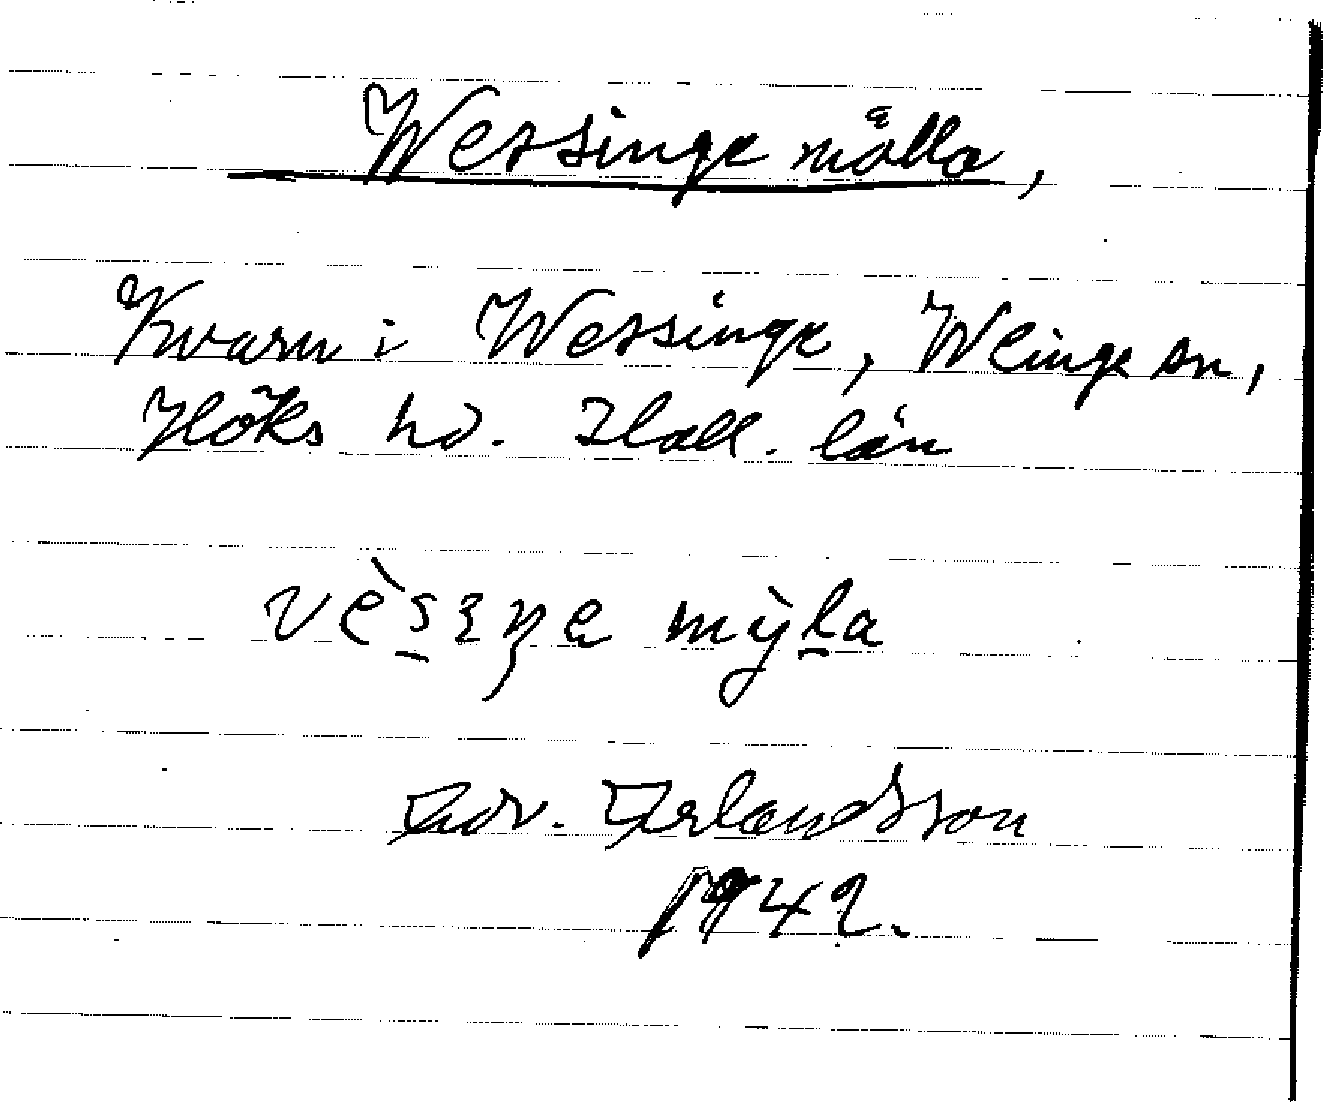 Wessinge mölla,
Kvarn i Wessinge, Weinge sn,
Höks hd. Hall. län
mỳla
Edv. Erlandsson
1942.